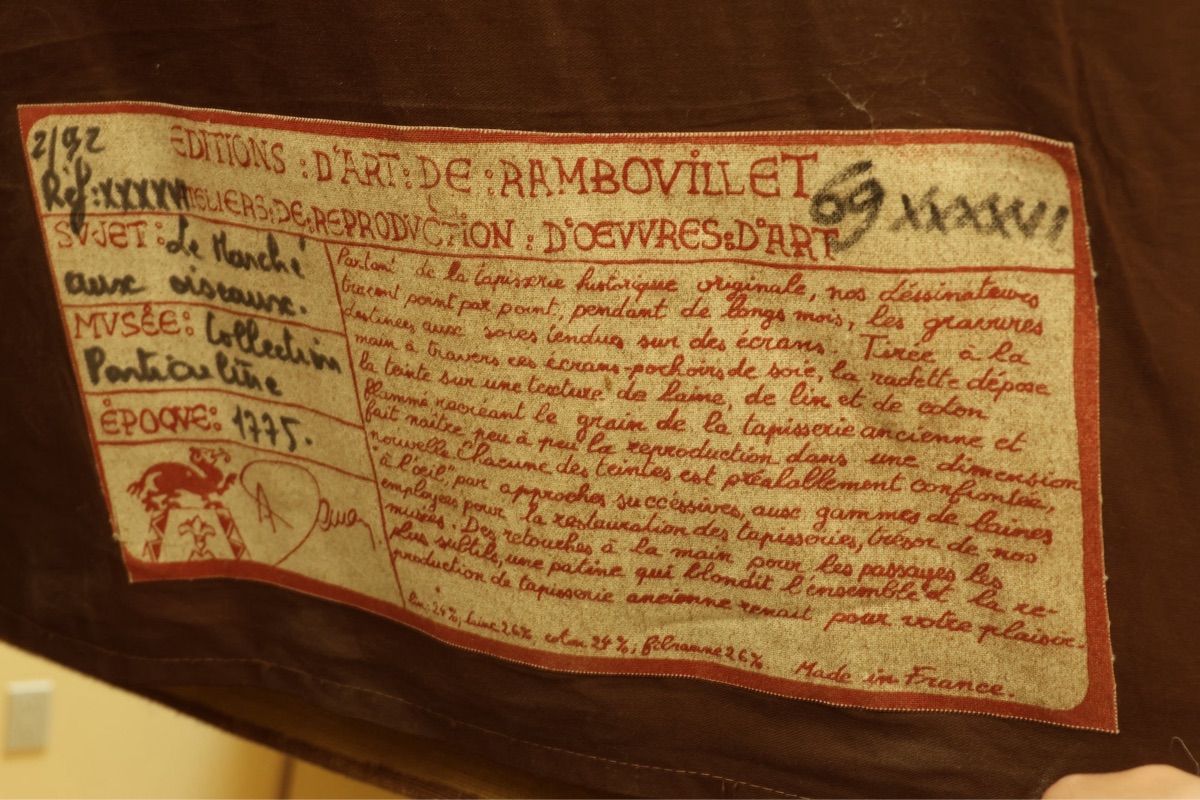 2/92
EDITIONS : D'ART : DE : RAMBOVILLET
Réf: XXXXVI
69 XXXXVI
ATELIERS : DE : REPRODVCTION : D'ŒVVRES : D'ART
SVJET : Le Marché
aux oiseaux.
MVSÉE : Collection
Particulière
ÉPOQVE : 1775.
Partant de la tapisserie historique originale, nos déssinateurs
tracent point par point, pendant de longs mois, les gravures
destinées aux soies tendues sur des écrans. Tirée à la
main à travers ces écrans-pochoirs de soie, la raclette dépose
la teinte sur une texture de laine, de lin et de coton
flammé recréant le grain de la tapisserie ancienne et
fait naître peu à peu la reproduction dans une dimension
nouvelle. Chacune des teintes est préalablement confrontée,
"à l'œil", par approches successives, aux gammes de laines
employées pour la restauration des tapisseries, trésor de nos
musées. Des retouches à la main pour les passages les
plus subtils, une patine qui blondit l'ensemble et la re-
production de tapisserie ancienne renaît pour votre plaisir.
lin: 24%, laine 26%, coton 24%, fibranne 26%
Made in France.